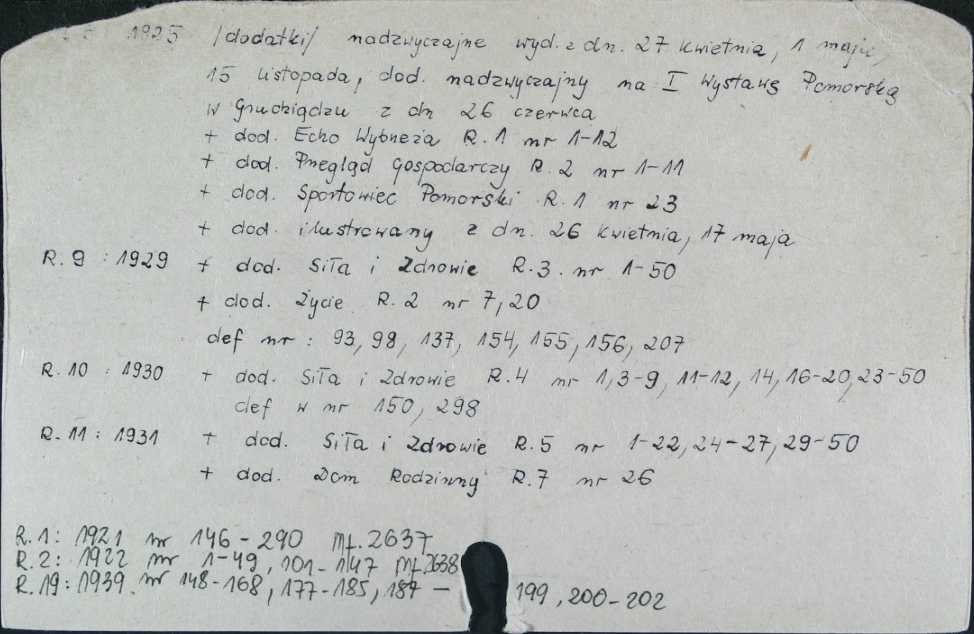 1925 /dodatki/ nadzwyczajne wyd. z dn. 27 kwietnia, 1 maja,
15 listopada, dod. nadzwyczajny na I Wystawę Pomorską
w Grudziądzu z dn 26 czerwca
+ dod. Echo Wybrzeża R. 1 nr 1-12
+ dod. Przegląd Gospodarczy R. 2 nr 1-11
+ dod. Sportowiec Pomorski R. 1 nr 23
+ dod. ilustrowany z dn. 26 kwietnia, 17 maja
R. 9 : 1929 + dod. Siła i Zdrowie R. 3. nr 1-50
+ dod. Życie R. 2 nr 7, 20
def nr : 93, 98, 137, 154, 155, 156, 207
R. 10 : 1930 + dod. Siła i Zdrowie R. 4 nr 1, 3-9, 11-12, 14, 16-20, 23-50
def w nr 150, 298
R. 11 : 1931 + dod. Siła i Zdrowie R. 5 nr 1-22, 24-27, 29-50
+ dod. Dom Rodzinny R. 7 nr 26
R. 1 : 1921 nr 146-290 Mf. 2637
R. 2 : 1922 nr 1-49, 101-147 Mf. 2638
R. 19 : 1939. nr 148-168, 177-185, 187 - 199, 200-202